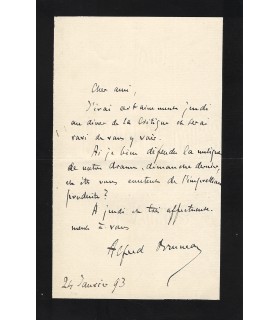 Cher ami,
J'irai certainement jeudi
au diner de la Critique et serai
ravi de vous y voir.
Ai je bien défendu la musique
de notre drame, dimanche dernier,
et êtes vous content de l'impression
produite?
A jeudi et très affectueuse-
ment à vous
Alfred Bruneau
24 Janvier 93